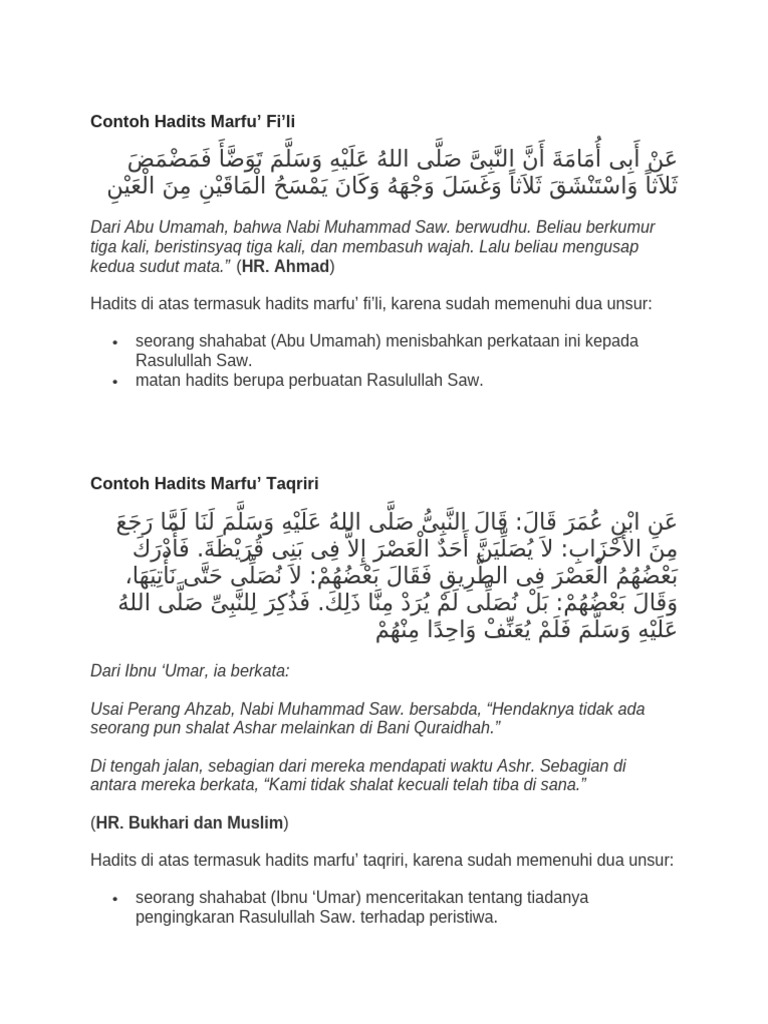 Contoh Hadits Marfu’ Fi’li
عَنْ أَبِى أُمَامَةَ أَنَّ النَّبِىَّ صَلَّى اللهُ عَلَيْهِ وَسَلَّمَ تَوَضَّأَ فَمَضْمَضَ
ثَلاَثاً وَاسْتَنْشَقَ ثَلاَثاً وَغَسَلَ وَجْهَهُ وَكَانَ يَمْسَحُ الْمَاقَيْنِ مِنَ الْعَيْنِ
Dari Abu Umamah, bahwa Nabi Muhammad Saw. berwudhu. Beliau berkumur
tiga kali, beristinsyaq tiga kali, dan membasuh wajah. Lalu beliau mengusap
kedua sudut mata.” (HR. Ahmad)
Hadits di atas termasuk hadits marfu’ fi’li, karena sudah memenuhi dua unsur:
• seorang shahabat (Abu Umamah) menisbahkan perkataan ini kepada
Rasulullah Saw.
• matan hadits berupa perbuatan Rasulullah Saw.
Contoh Hadits Marfu’ Taqriri
عَنِ ابْنِ عُمَرَ قَالَ: قَالَ النَّبِىُّ صَلَّى اللهُ عَلَيْهِ وَسَلَّمَ لَنَا لَمَّا رَجَعَ
مِنَ الأَحْزَابِ: لاَ يُصَلِّيَنَّ أَحَدٌ الْعَصْرَ إِلاَّ فِى بَنِى قُرَيْظَةَ. فَأَدْرَكَ
بَعْضُهُمُ الْعَصْرَ فِى الطَّرِيقِ فَقَالَ بَعْضُهُمْ: لاَ نُصَلِّى حَتَّى نَأْتِيَهَا،
وَقَالَ بَعْضُهُمْ: بَلْ نُصَلِّى لَمْ يُرَدْ مِنَّا ذَلِكَ. فَذُكِرَ لِلنَّبِىِّ صَلَّى اللهُ
عَلَيْهِ وَسَلَّمَ فَلَمْ يُعَنِّفْ وَاحِدًا مِنْهُمْ
Dari Ibnu ‘Umar, ia berkata:
Usai Perang Ahzab, Nabi Muhammad Saw. bersabda, “Hendaknya tidak ada
seorang pun shalat Ashar melainkan di Bani Quraidhah.”
Di tengah jalan, sebagian dari mereka mendapati waktu Ashr. Sebagian di
antara mereka berkata, “Kami tidak shalat kecuali telah tiba di sana.”
(HR. Bukhari dan Muslim)
Hadits di atas termasuk hadits marfu’ taqriri, karena sudah memenuhi dua unsur:
• seorang shahabat (Ibnu ‘Umar) menceritakan tentang tiadanya
pengingkaran Rasulullah Saw. terhadap peristiwa.